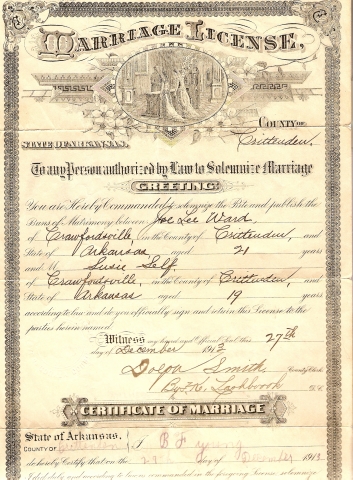 MARRIAGE LICENSE,
COUNTY OF
STATE OF ARKANSAS. Crittenden.
To any Person authorized by Law to Solemnize Marriage
GREETING:
You are Hereby Commanded to solemnize the Rite and publish the
Banns of Matrimony between Joe Lee Ward
of Crawfordsville, in the County of Crittenden, and
State of Arkansas aged 21 years
and M Susie Self
of Crawfordsville, in the County of Crittenden, and
State of Arkansas aged 19 years
according to law and do you officially sign and return this License to the
parties herein named.
Witness my hand and Official Seal this 27th
day of December 1913
Smith County Clerk
By D.C.
CERTIFICATE OF MARRIAGE
State of Arkansas,
COUNTY OF Crittenden I B F Young
do hereby Certify that on the day of December 1913
I did duly and according to law as commanded in the foregoing License solemnize